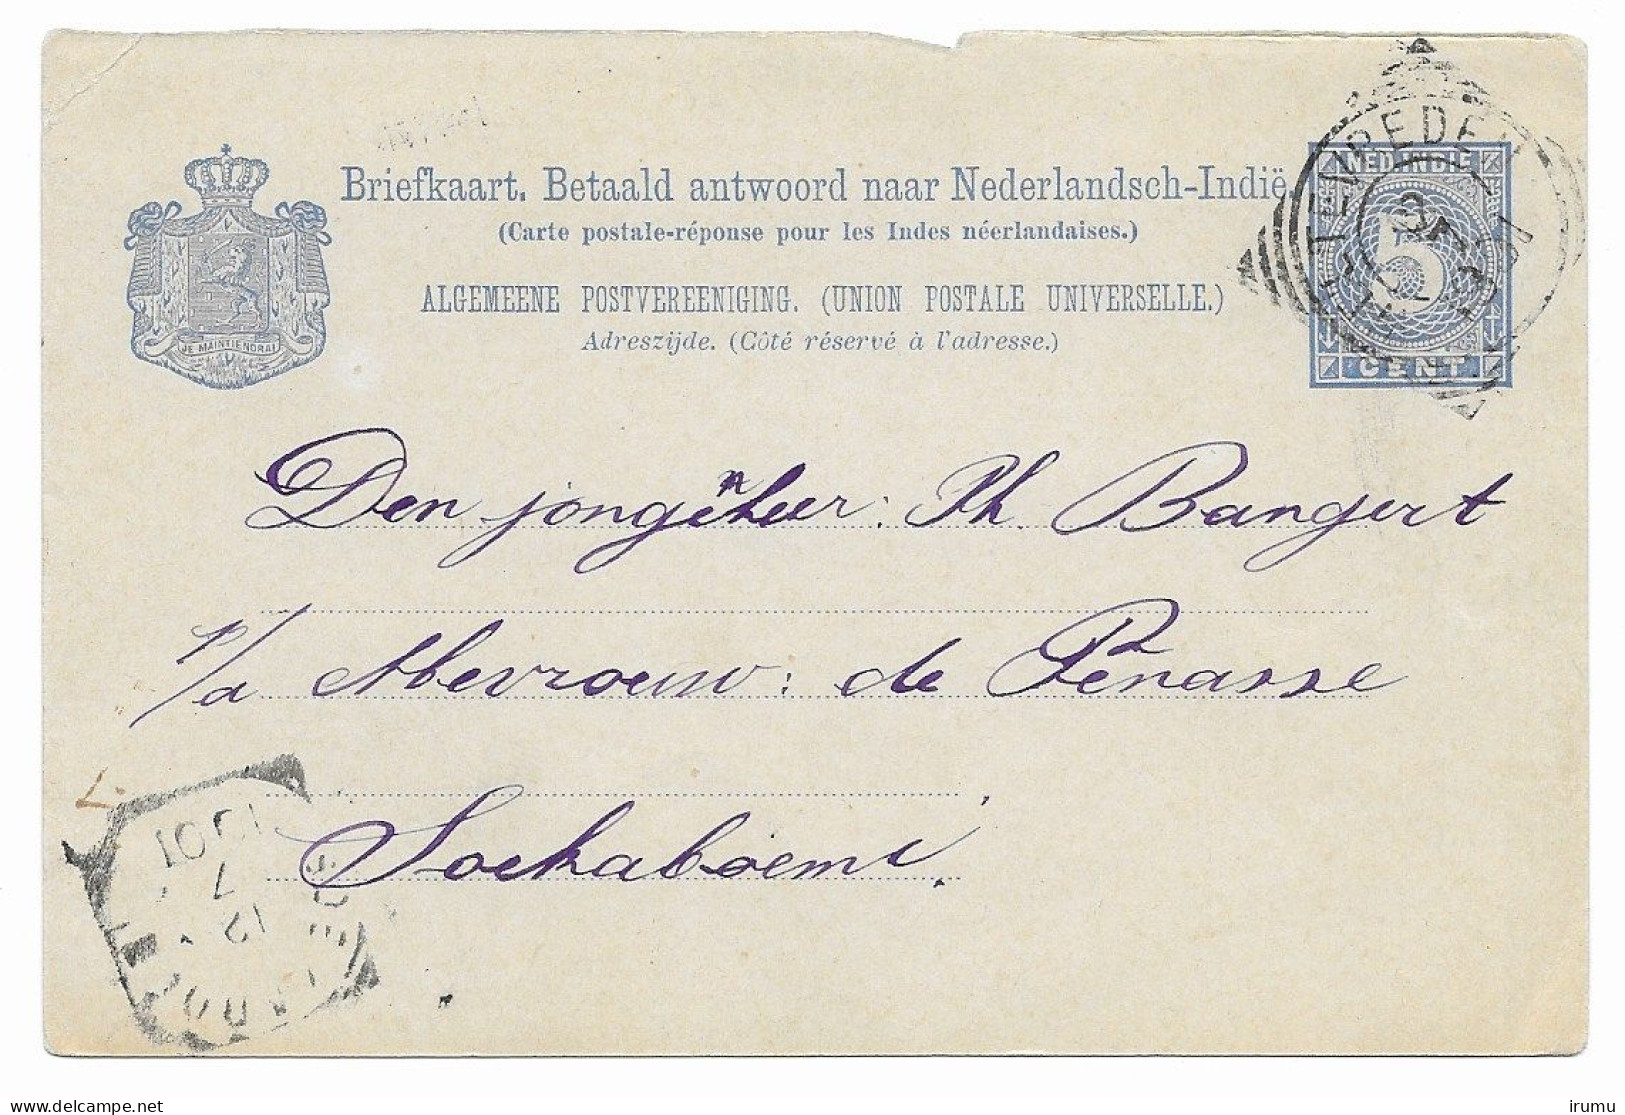 Briefkaart. Betaald antwoord naar Nederlandsch-Indië.
(Carte postale-réponse pour les Indes néerlandaises.)
ALGEMEENE POSTVEREENIGING. (UNION POSTALE UNIVERSELLE.)
Adreszijde. (Côté réservé à l'adresse.)
JE MAINTIENDRAI
NED. INDIE
5
CENT
Den jongeheer: Ph. Bangert
p/a Mevrouw: de Penasse
Soekaboemi.
12
7
1901
irumu